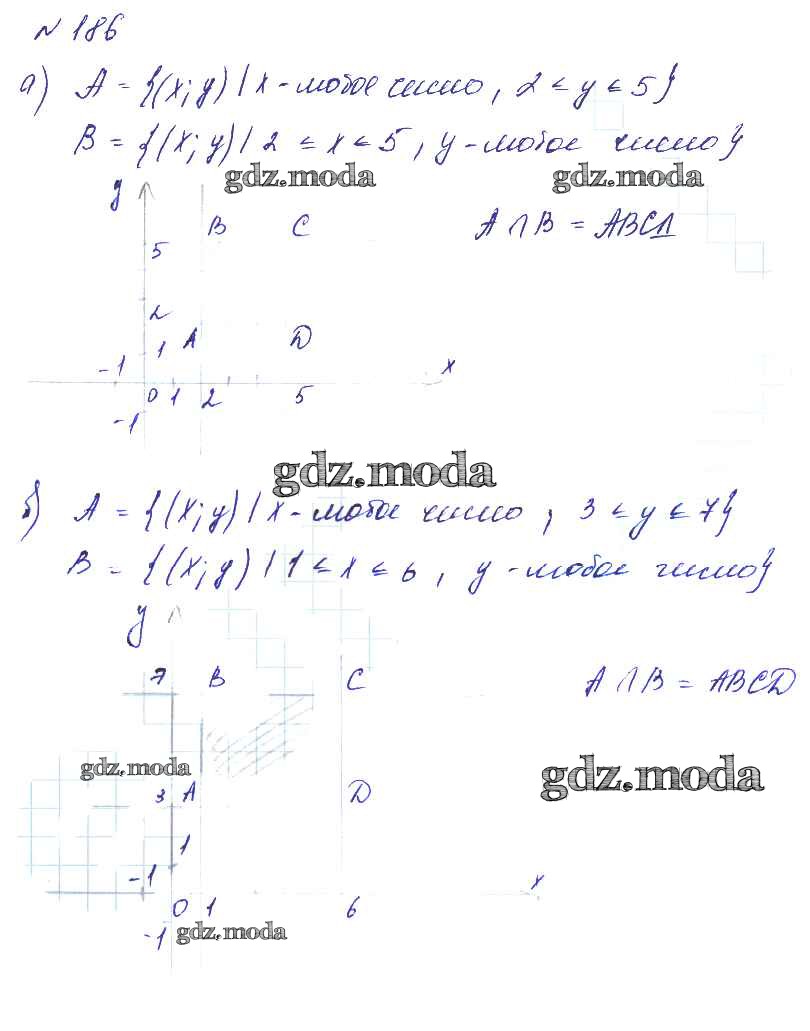 № 186
а) A = {(x; y) | x - любое число, 2 ≤ y ≤ 5}
B = {(x; y) | 2 ≤ x ≤ 5, y - любое число}
gdz.moda gdz.moda
y
B C A ∩ B = ABCD
5
2
1 A D
-1 x
0 1 2 5
-1
gdz.moda
б) A = {(x; y) | x - любое число, 3 ≤ y ≤ 7}
B = {(x; y) | 1 ≤ x ≤ 6, y - любое число}
y
7 B C A ∩ B = ABCD
gdz.moda gdz.moda
3 A D
1
-1 x
0 1 6
-1 gdz.moda